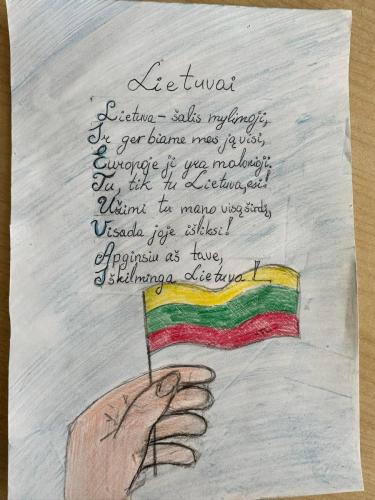 Lietuvai
Lietuva – šalis mylimoji,
Ir gerbiame mes ją visi,
Europoje ji yra malonioji.
Tu, tik tu Lietuva, esi!
Užimi tu mano visą širdį,
Visada joje išliksi!
Apginsiu aš tave,
Iškilminga Lietuva!